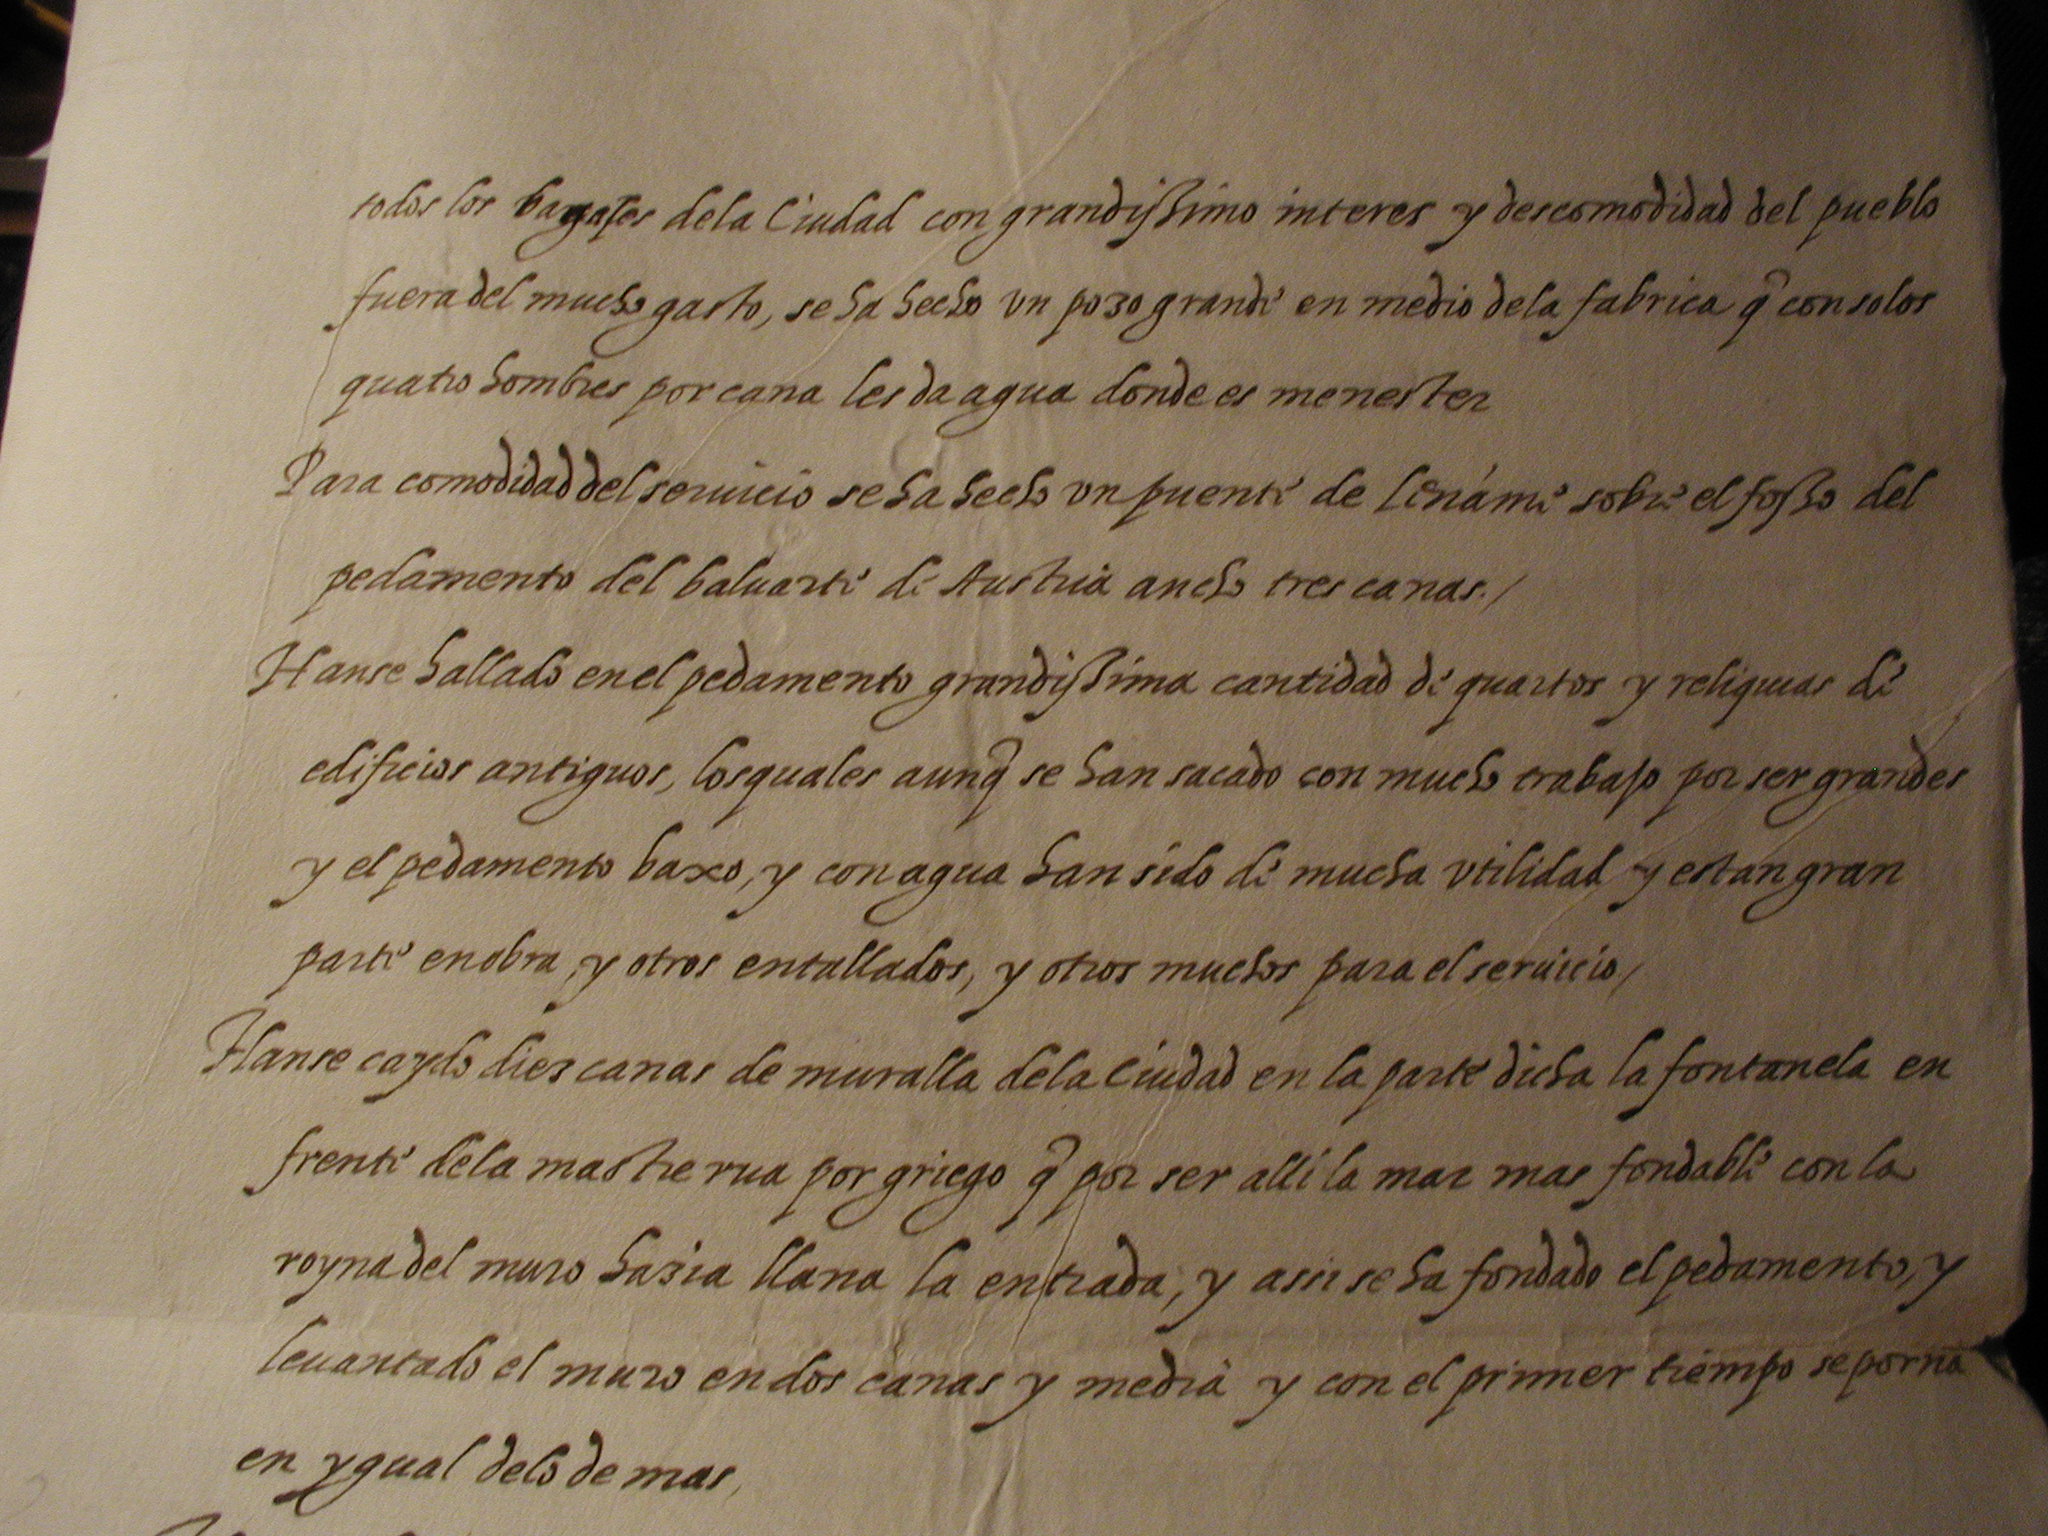 todos los bagajes dela Ciudad con grandissimo interes y descomodidad del pueblo
fuera del mucho gasto, se ha hecho vn pozo grande en medio dela fabrica q̃ con solos
quatro hombres por cana les da agua donde es menester
Para comodidad del seruicio se ha hecho vn puente de lenáme sobre el fosso del
pedamento del baluarte de Austria ancho tres canas./
Hanse hallado en el pedamento grandissima cantidad de quartos y reliquias de
edificios antiguos, los quales aunq̃ se han sacado con mucho trabajo por ser grandes
y el pedamento baxo, y con agua han sido de mucha vtilidad y estan gran
parte en obra, y otros entallados, y otros muchos para el seruicio,/
Hanse caydo diez canas de muralla dela Ciudad en la parte dicha la fontanela en
frente dela mastre rua por griego q̃ por ser alli la mar mas fondable con la
royna del muro hazia llana la entrada, y assi se ha fondado el pedamento, y
leuantado el muro en dos canas y media y con el primer tiempo se porna
en ygual delo de mas,